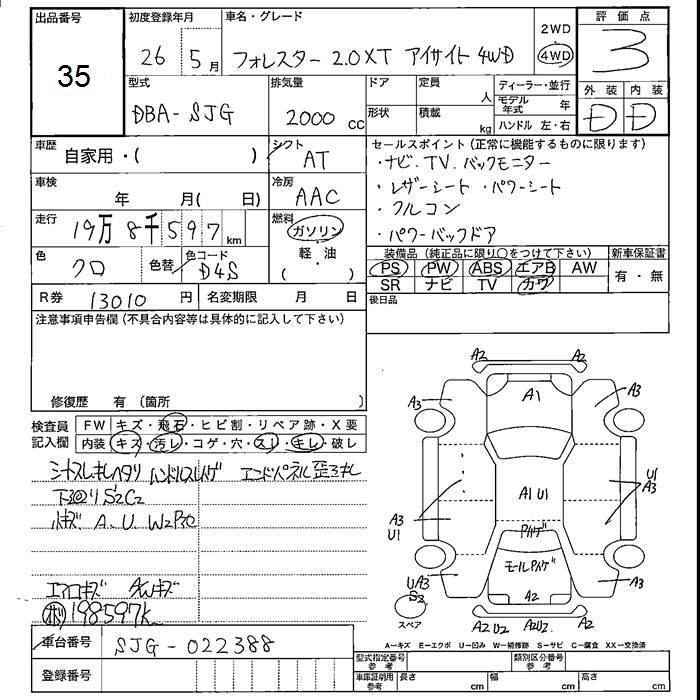 出品番号
35
初度登録年月
26 5月
車名・グレード
フォレスター 2.0XT アイサイト 4WD
2WD
4WD
評価点
3
外装 内装
D D
型式
DBA-SJG
排気量
2000 cc
ドア
形状
定員
人
積載
kg
ディーラー・並行
モデル年式 年
ハンドル 左・右
車歴
自家用・( )
シフト
AT
車検
年 月( 日)
冷房
AAC
走行
19万8千597 km
燃料
ガソリン
軽・油
( )
色
クロ
色替
色コード
D4S
R券 13010 円
名変期限 月 日
セールスポイント(正常に機能するものに限ります)
・ナビ.TV.バックモニター
・レザーシート ・パワーシート
・フルコン
・パワーバックドア
装備品(純正品に限り○をつけて下さい)
PS PW ABS エアB AW
SR ナビ TV カワ
新車保証書
有・無
後日品
注意事項申告欄(不具合内容等は具体的に記入して下さい)
修復歴 有(箇所 )
検査員記入欄
FW キズ・飛石・ヒビ割・リペア跡・X要
内装 キズ・汚レ・コゲ・穴・スレ・キレ・破レ
シートスレキレヘタリ ハンドルスレハゲ エンドパネル歪ミキレ
下回りS2C2
小キズ A、U W2P30
エアロキズ AWキズ
198597k
車台番号 SJG-022388
登録番号
A2 A2
A3 A1 A3
A1 U1
U1
A3
A3
U1
Pハゲ
モールPハゲ
UA3
S2
A3
A2
スペア
A2 U2 A2U2 A2
A−キズ E−エクボ U−凹み W−補修跡 S−サビ C−腐食 XX−交換済
型式指定番号
参考
類別区分番号
参考
車庫証明
参考
長さ cm
幅 cm
高さ cm